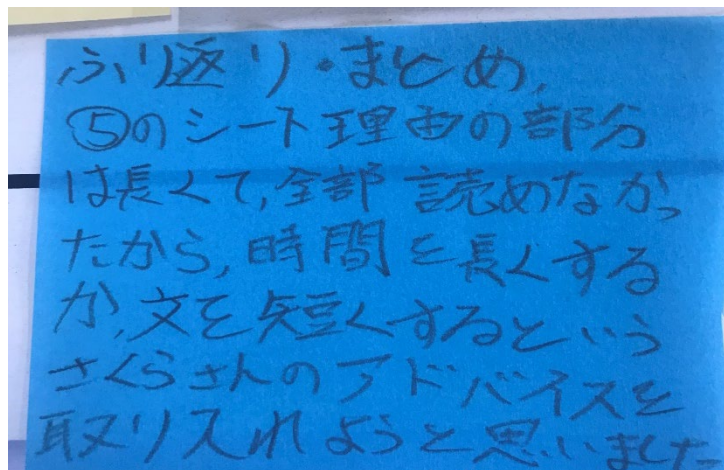 ふり返り・まとめ,
⑤のシート理由の部分
は長くて,全部読めなかっ
たから,時間を長くする
か,文を短くするという
さくらさんのアドバイスを
取り入れようと思いました